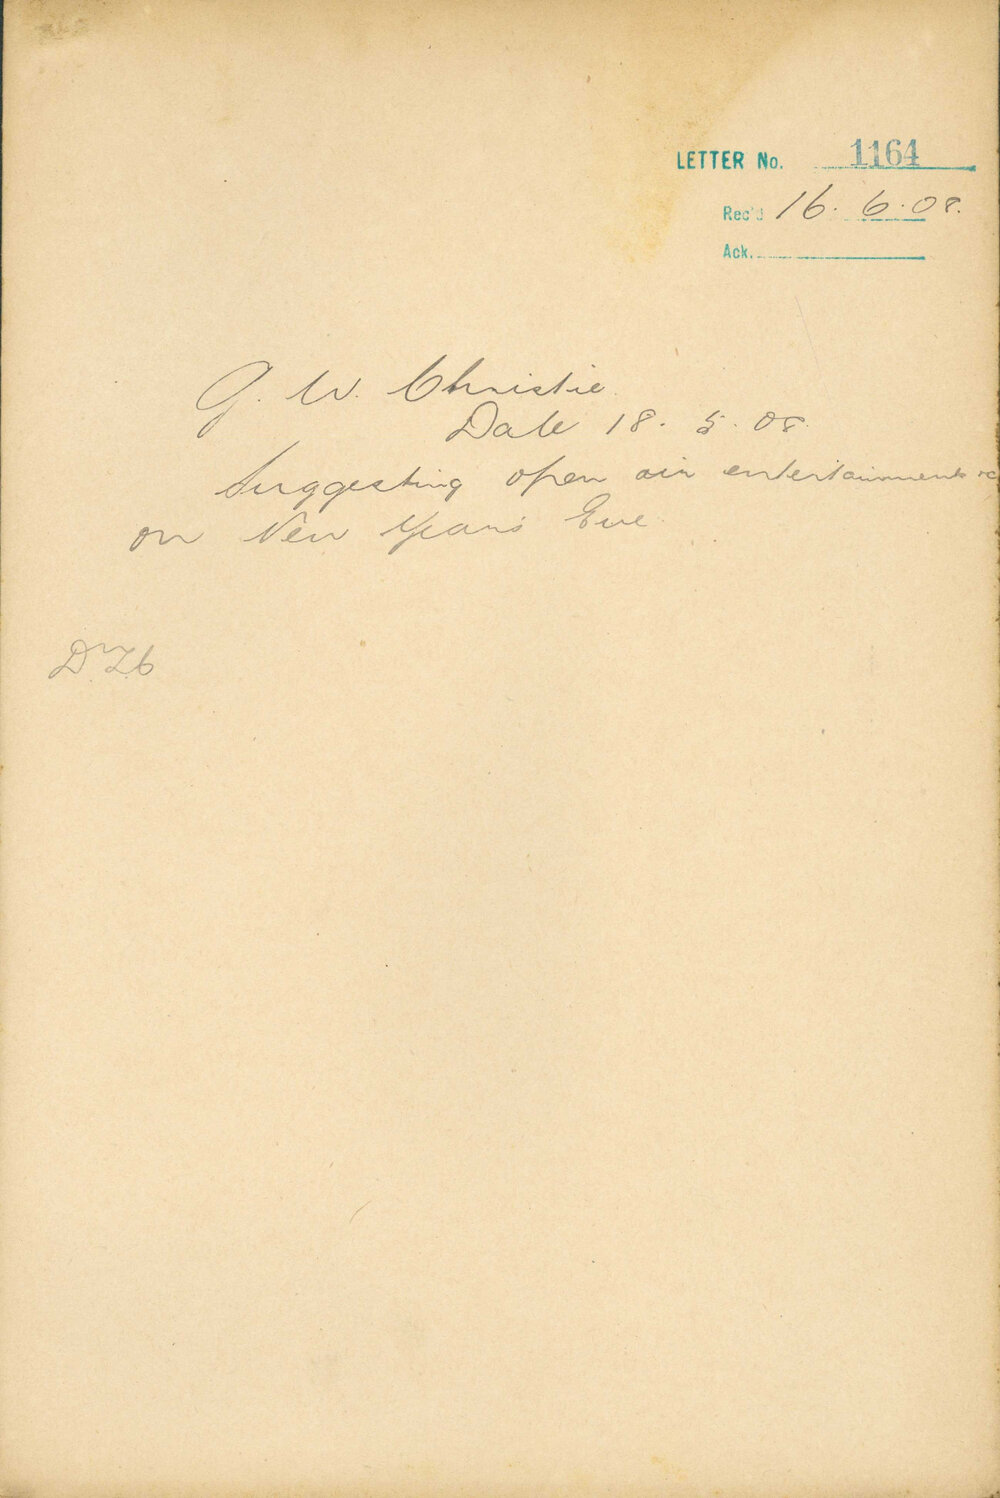 LETTER No. 1164
Rec'd 16. 6. 08.
Ack.
G. W. Christie
Date 18. 5. 08.
Suggesting open air entertainments &c
on New Year's Eve